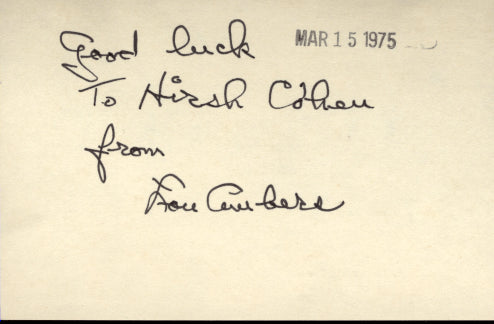 Good luck
MAR 15 1975
To Hirsh Cohen
from
Lou Ambers